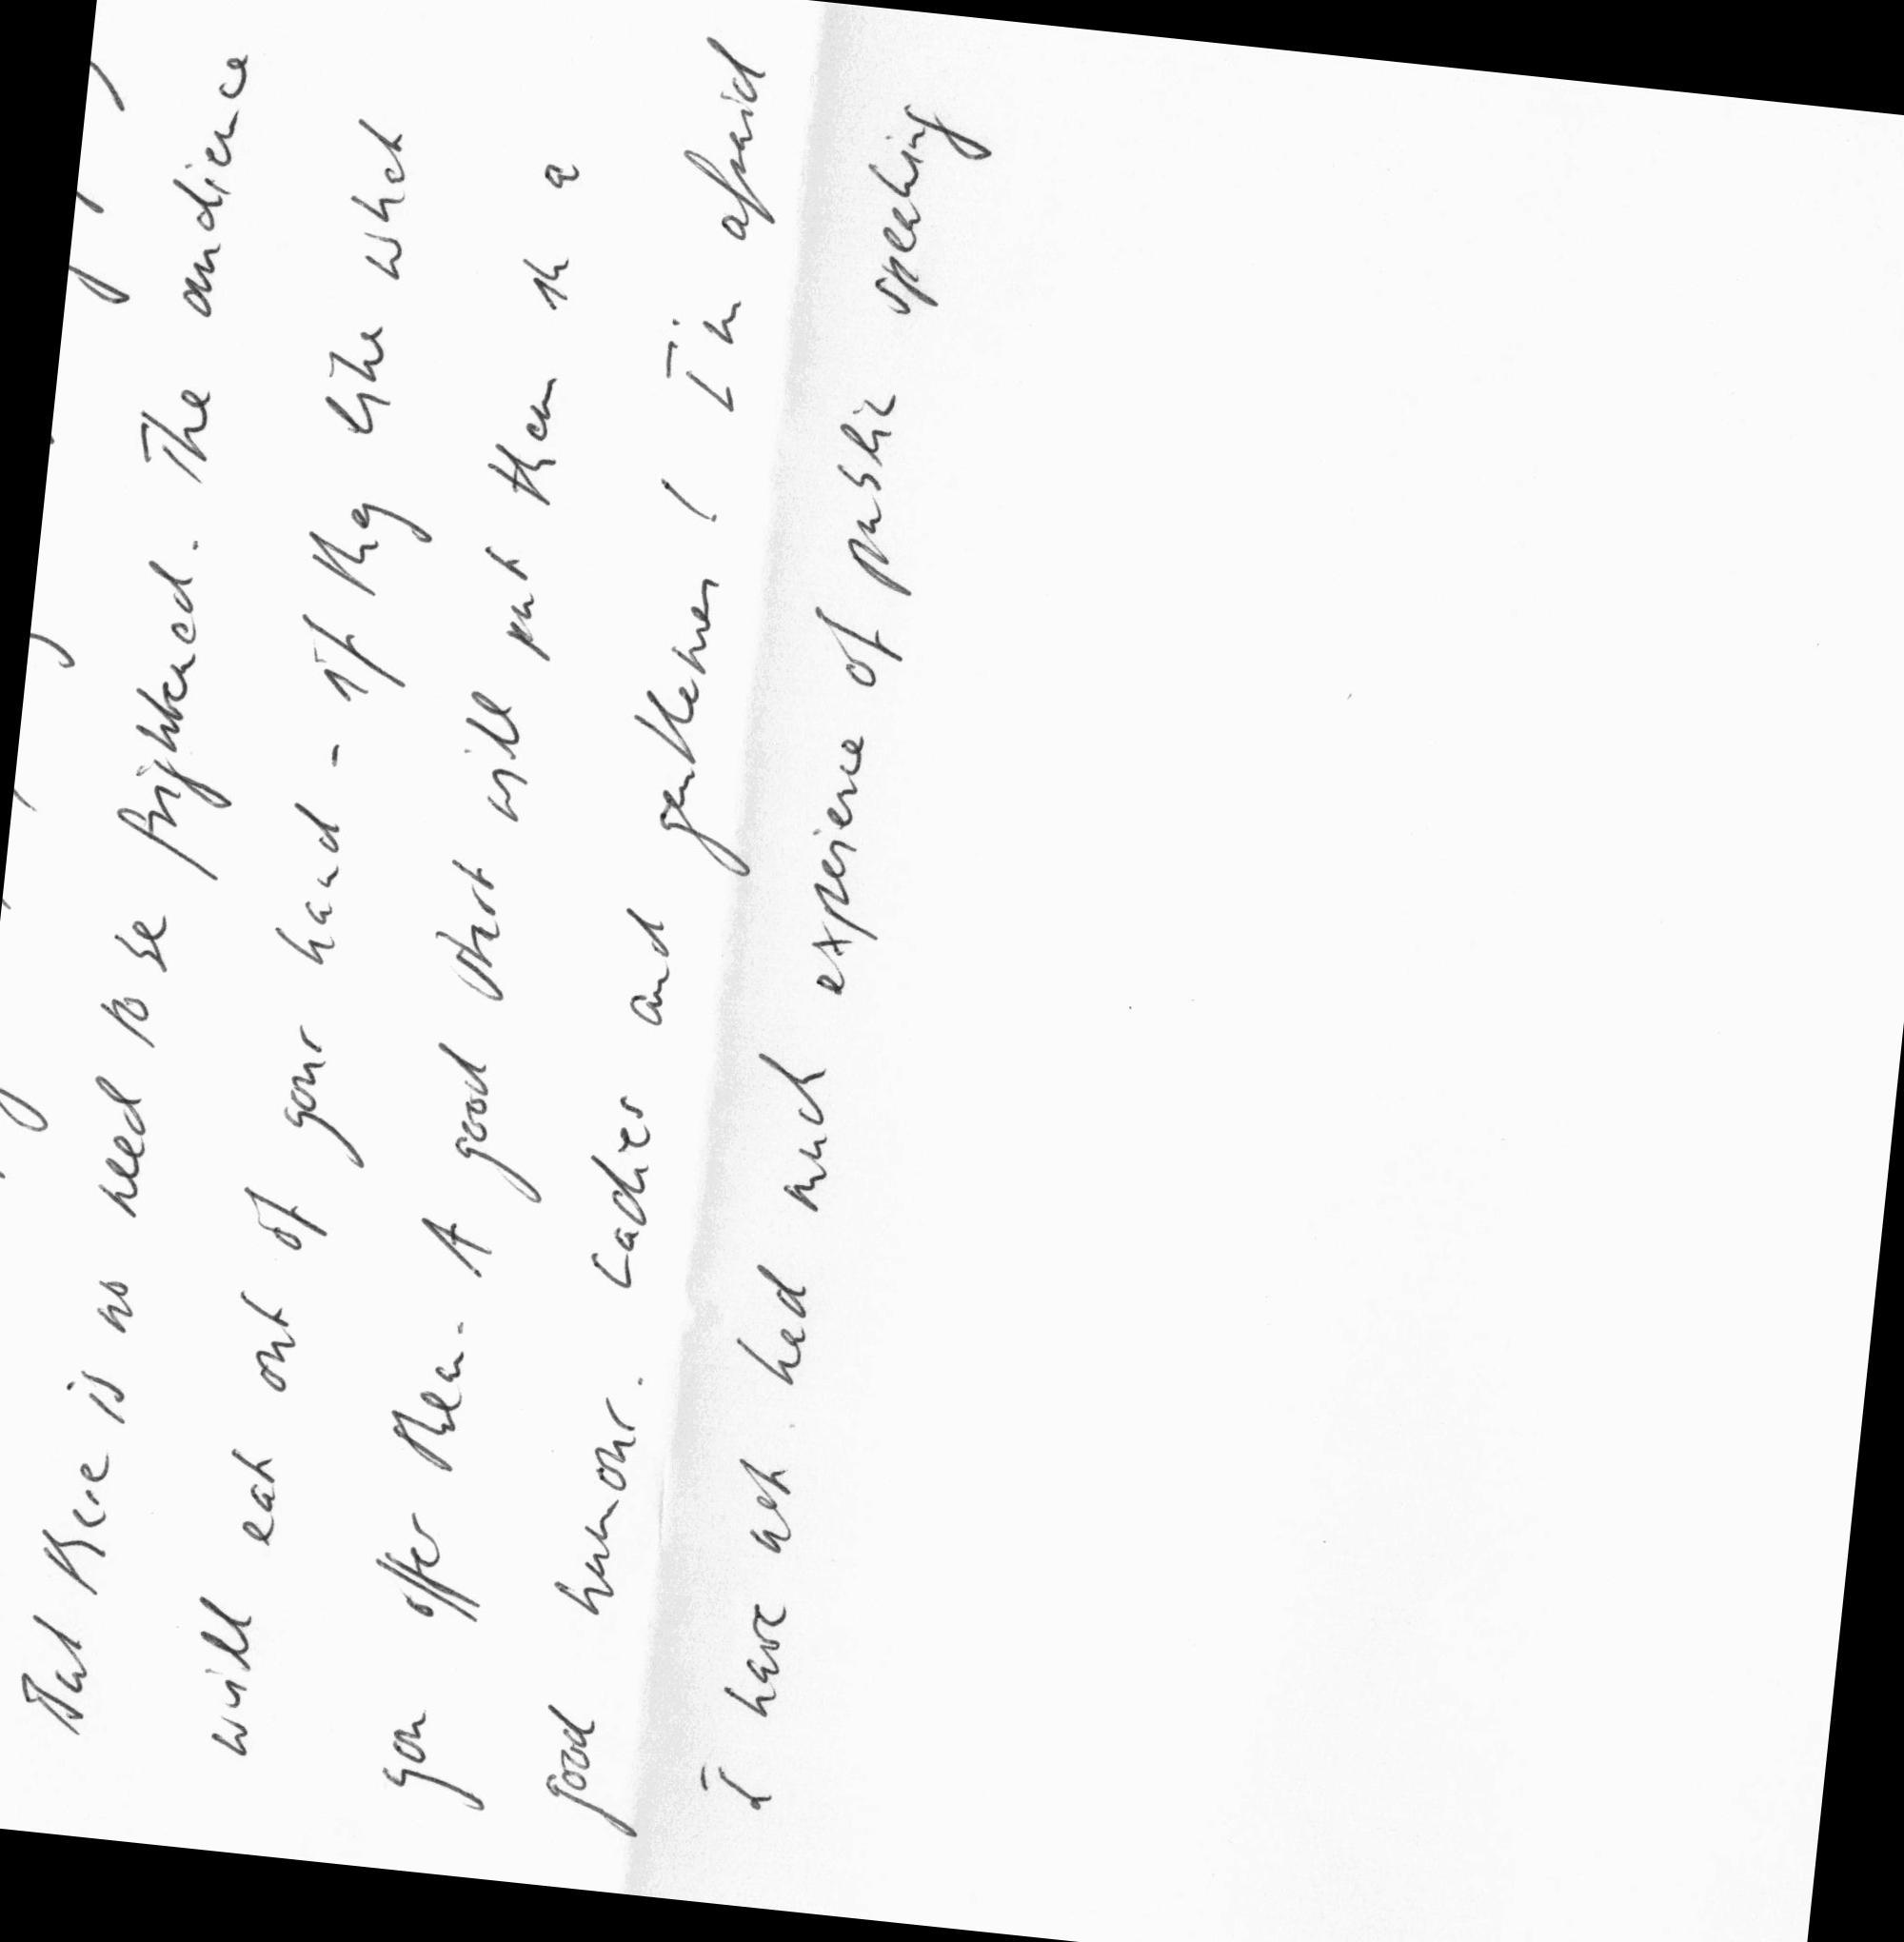 But there is no need to be frightened. The audience
will eat out of your hand - if they like what
you offer them. A good start will put them in a
good humour. Ladies and gentlemen ( I'm afraid
I have not had much experience of public speaking